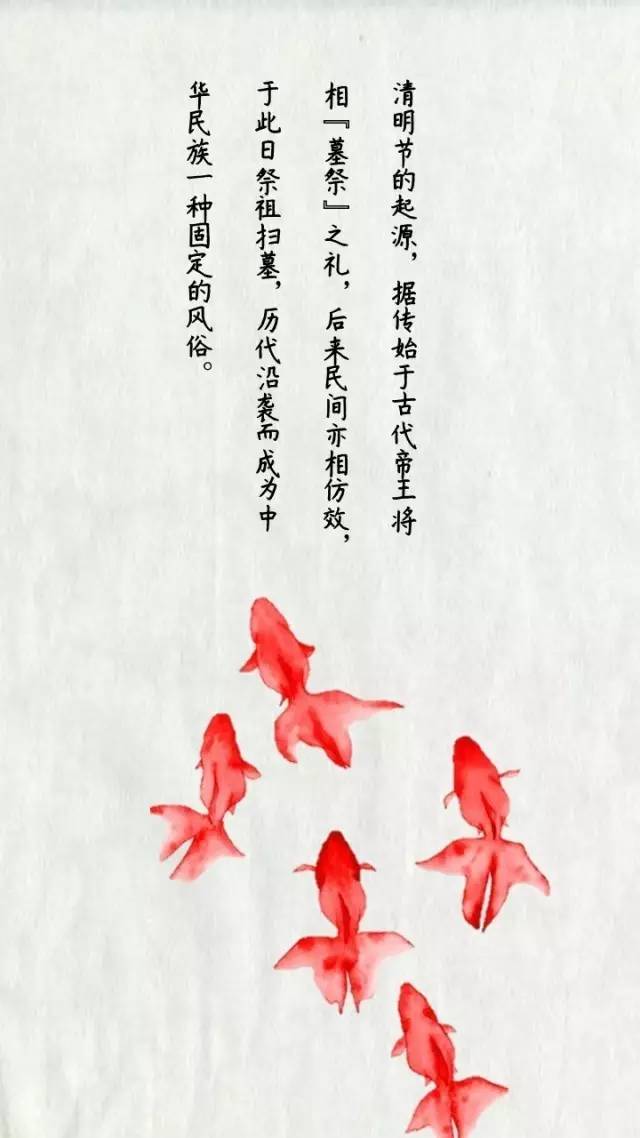 清明节的起源，据传始于古代帝王将
相『墓祭』之礼，后来民间亦相仿效，
于此日祭祖扫墓，历代沿袭而成为中
华民族一种固定的风俗。